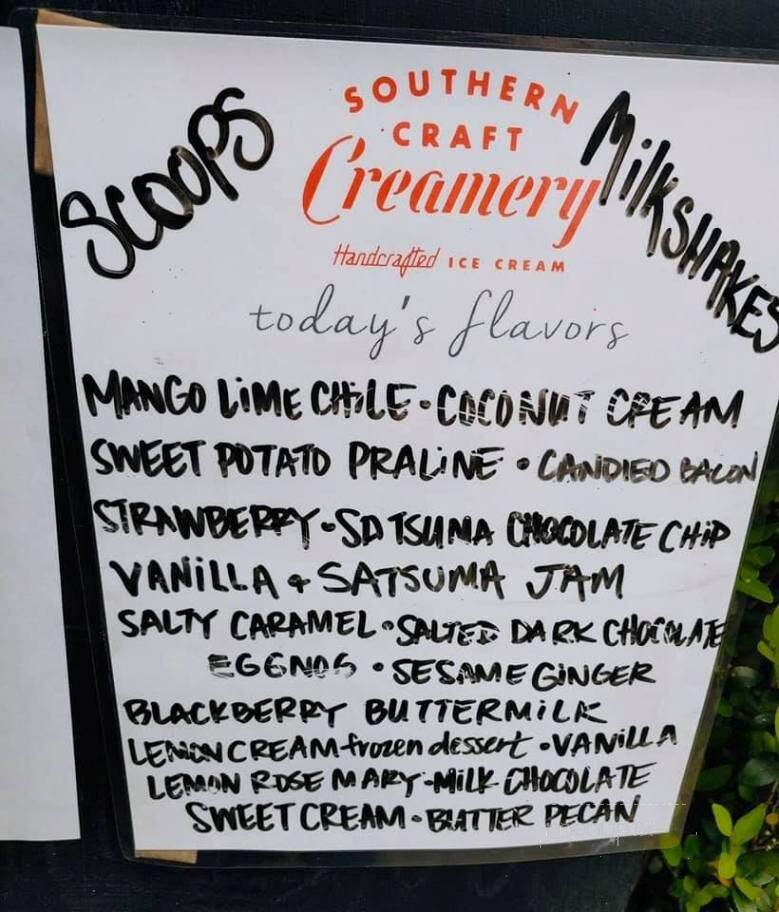 SCOOPS
SOUTHERN
CRAFT
Creamery
MilkSHAKES
Handcrafted ICE CREAM
today's flavors
MANGO LiME CHiLE • COCONUT CREAM
SWEET POTATO PRALiNE • CANDIED BACON
STRAWBERRY • SATSUMA CHOCOLATE CHiP
VANiLLA & SATSUMA JAM
SALTY CARAMEL • SALTED DARK CHOCOLATE
EGGNOG • SESAME GiNGER
BLACKBERRY BUTTERMiLK
LEMON CREAM frozen dessert • VANiLLA
LEMON ROSEMARY • MiLK CHOCOLATE
SWEET CREAM • BUTTER PECAN